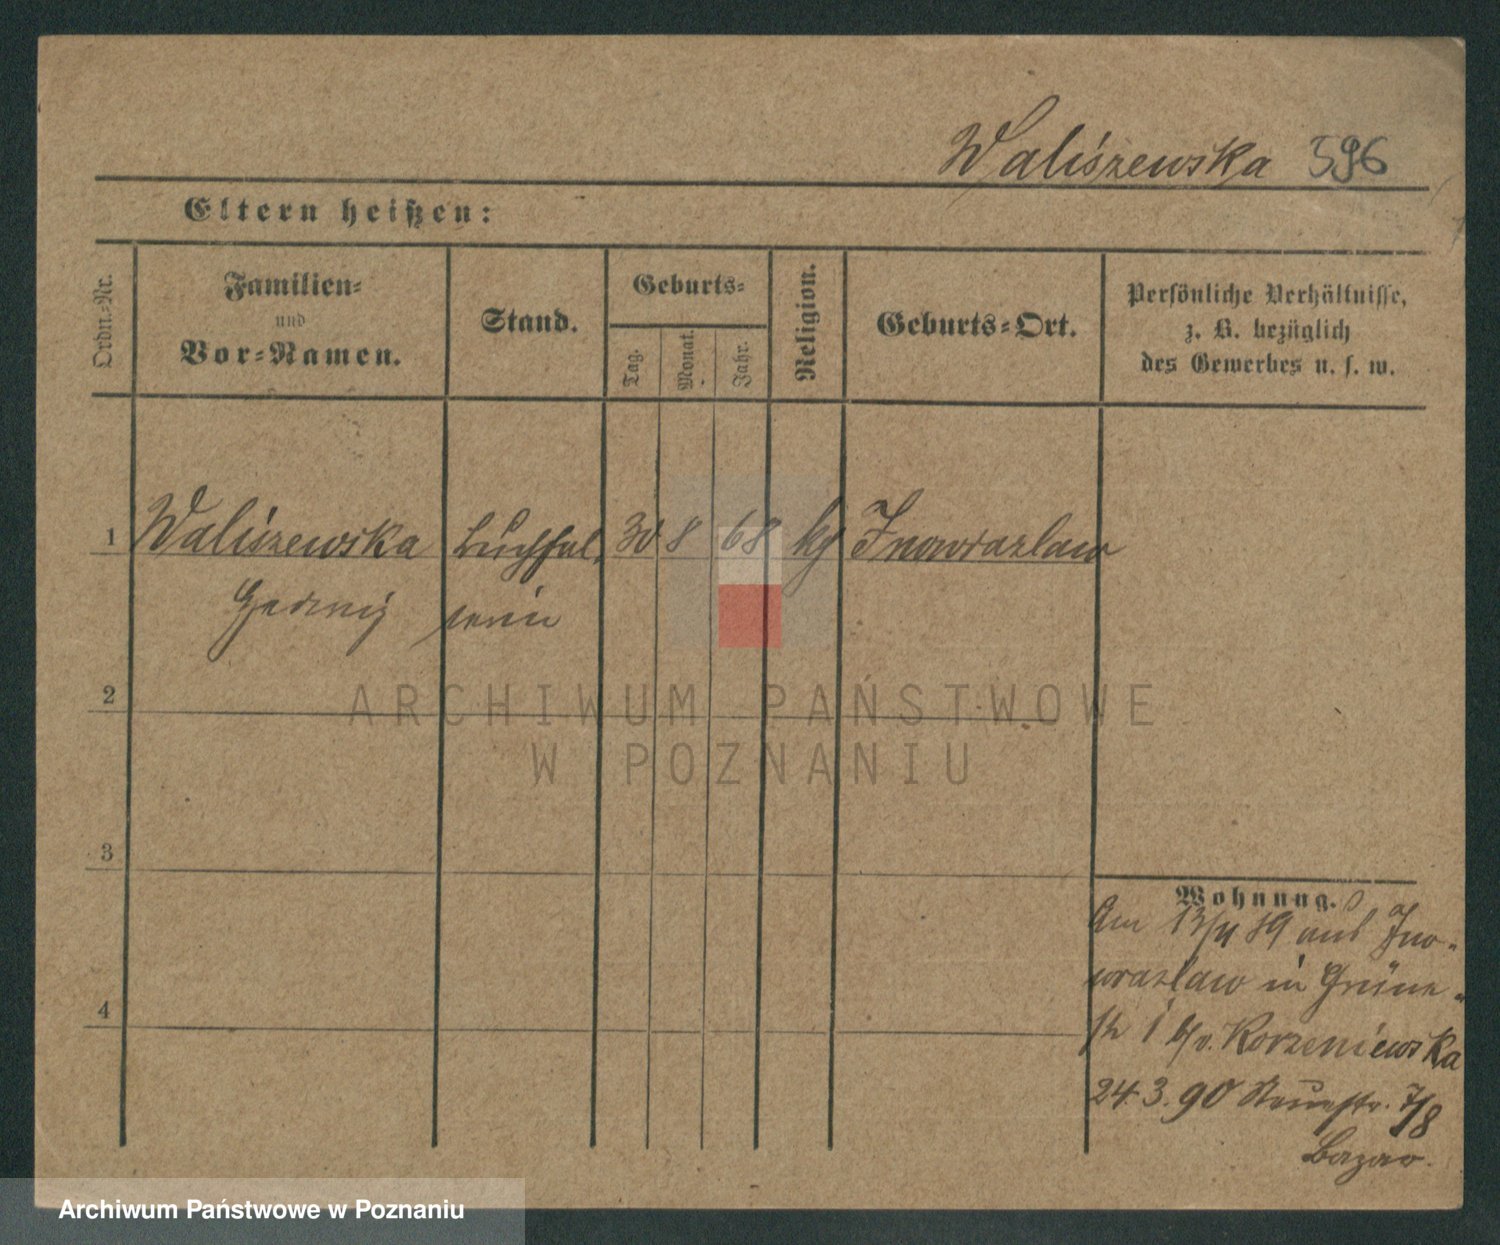 Waliszewska 596
Eltern heißen:
Ordn.-Nr.
Familien-
und
Vor-Namen.
Stand.
Geburts-
Tag.
Monat.
Jahr.
Religion.
Geburts-Ort.
Persönliche Verhältnisse,
z. B. bezüglich
des Gewerbes u. s. w.
1 Waliszewska Buchhal- 30 8 68 kg Inowrazlaw
Hedwig terin
2
ARCHIWUM PAŃSTWOWE
W POZNANIU
3
4
Wohnung.
Am 13/4 89 aus Ino-
wrazlaw in Grüne-
str 1 b/v. Korzeniewska
24.3.90 Neuestr. 7/8
Bazar.
Archiwum Państwowe w Poznaniu